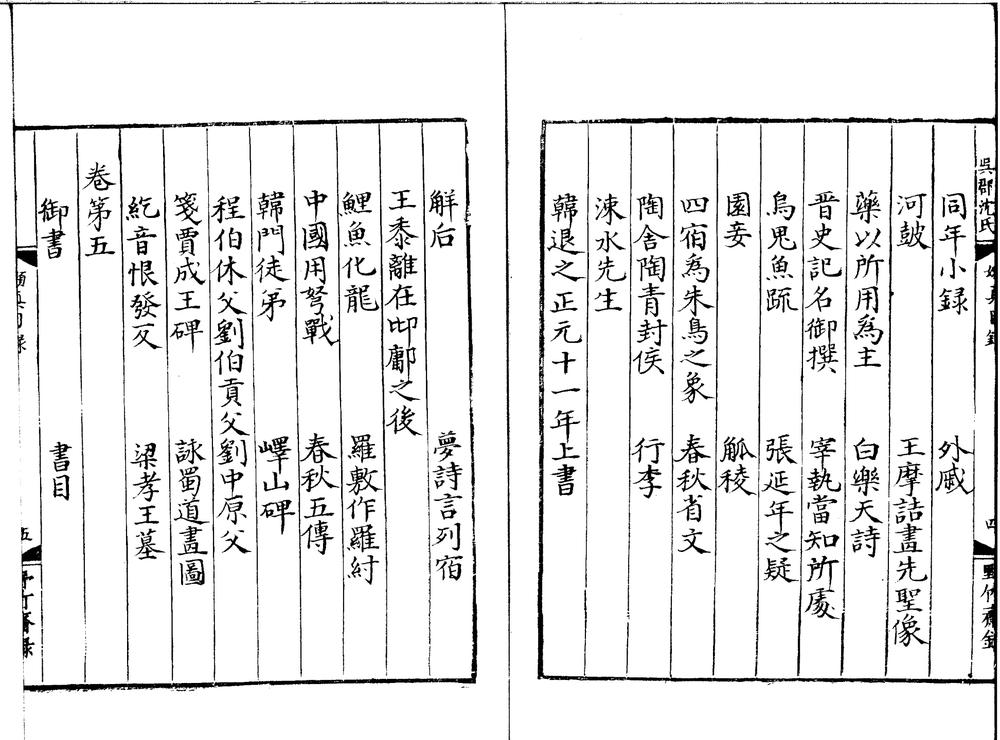 吳郡沈氏
四
野竹齋錄
同年小録 外戚
河皷 王摩詰畫先聖像
藥以所用為主 白樂天詩
晋史記名御撰 宰執當知所處
烏鬼魚䟽 張延年之疑
園妾 觚稜
四宿為朱鳥之象 春秋省文
陶舍陶青封侯 行李
涑水先生
韓退之正元十一年上書
觧后 夢詩言列宿
王黍離在邶鄘之後
鯉魚化龍 羅敷作羅紂
中國用弩戰 春秋五傳
韓門徒弟 嶧山碑
程伯休父劉伯貢父劉中原父
箋賈成王碑 詠蜀道畫圖
紇音恨發反 梁孝王墓
卷第五
御書 書目
五